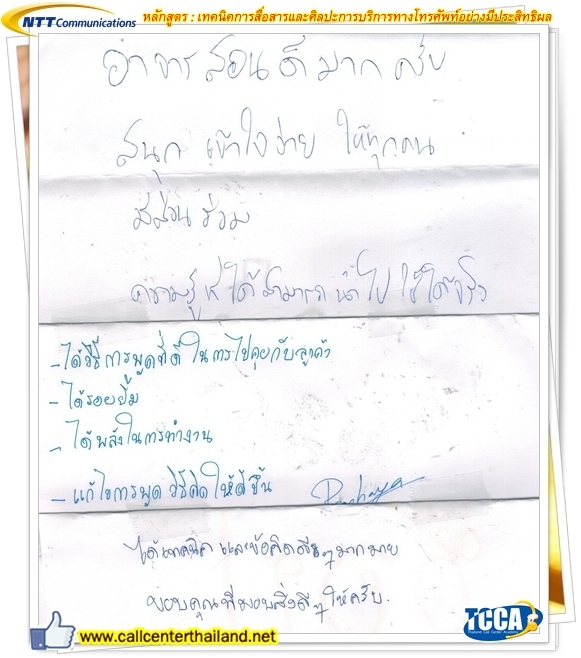 NTT Communications
หลักสูตร : เทคนิคการสื่อสารและศิลปะการบริการทางโทรศัพท์อย่างมีประสิทธิผล
อาจารสอนดีมากครับ
สนุก เข้าใจง่าย ให้ทุกคน
มีส่วนร่วม
ความรู้ที่ได้สามารถนำไปใช้ได้จริง
- ได้วิธีการพูดที่ดีในการไปคุยกับลูกค้า
- ได้รอยยิ้ม
- ได้พลังในการทำงาน
- แก้ไขการพูด วิธีคิดให้ดีขึ้น
ได้เทคนิค และข้อคิดดีๆมากมาย
ขอบคุณที่มอบสิ่งดีๆให้ครับ.
www.callcenterthailand.net
TCCA
Thailand Call Center Academy